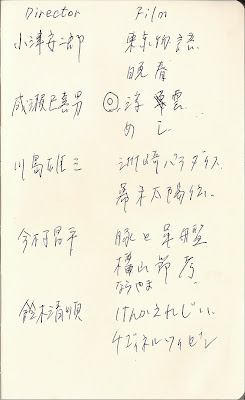 Director Film
小津安二郎 東京物語
晩春
成瀬巳喜男 ◎ 浮雲
めし
川島雄三 洲崎パラダイス
幕末太陽伝
今村昌平 豚と軍艦
楢山節考
ならやま
鈴木清順 けんかえれじい